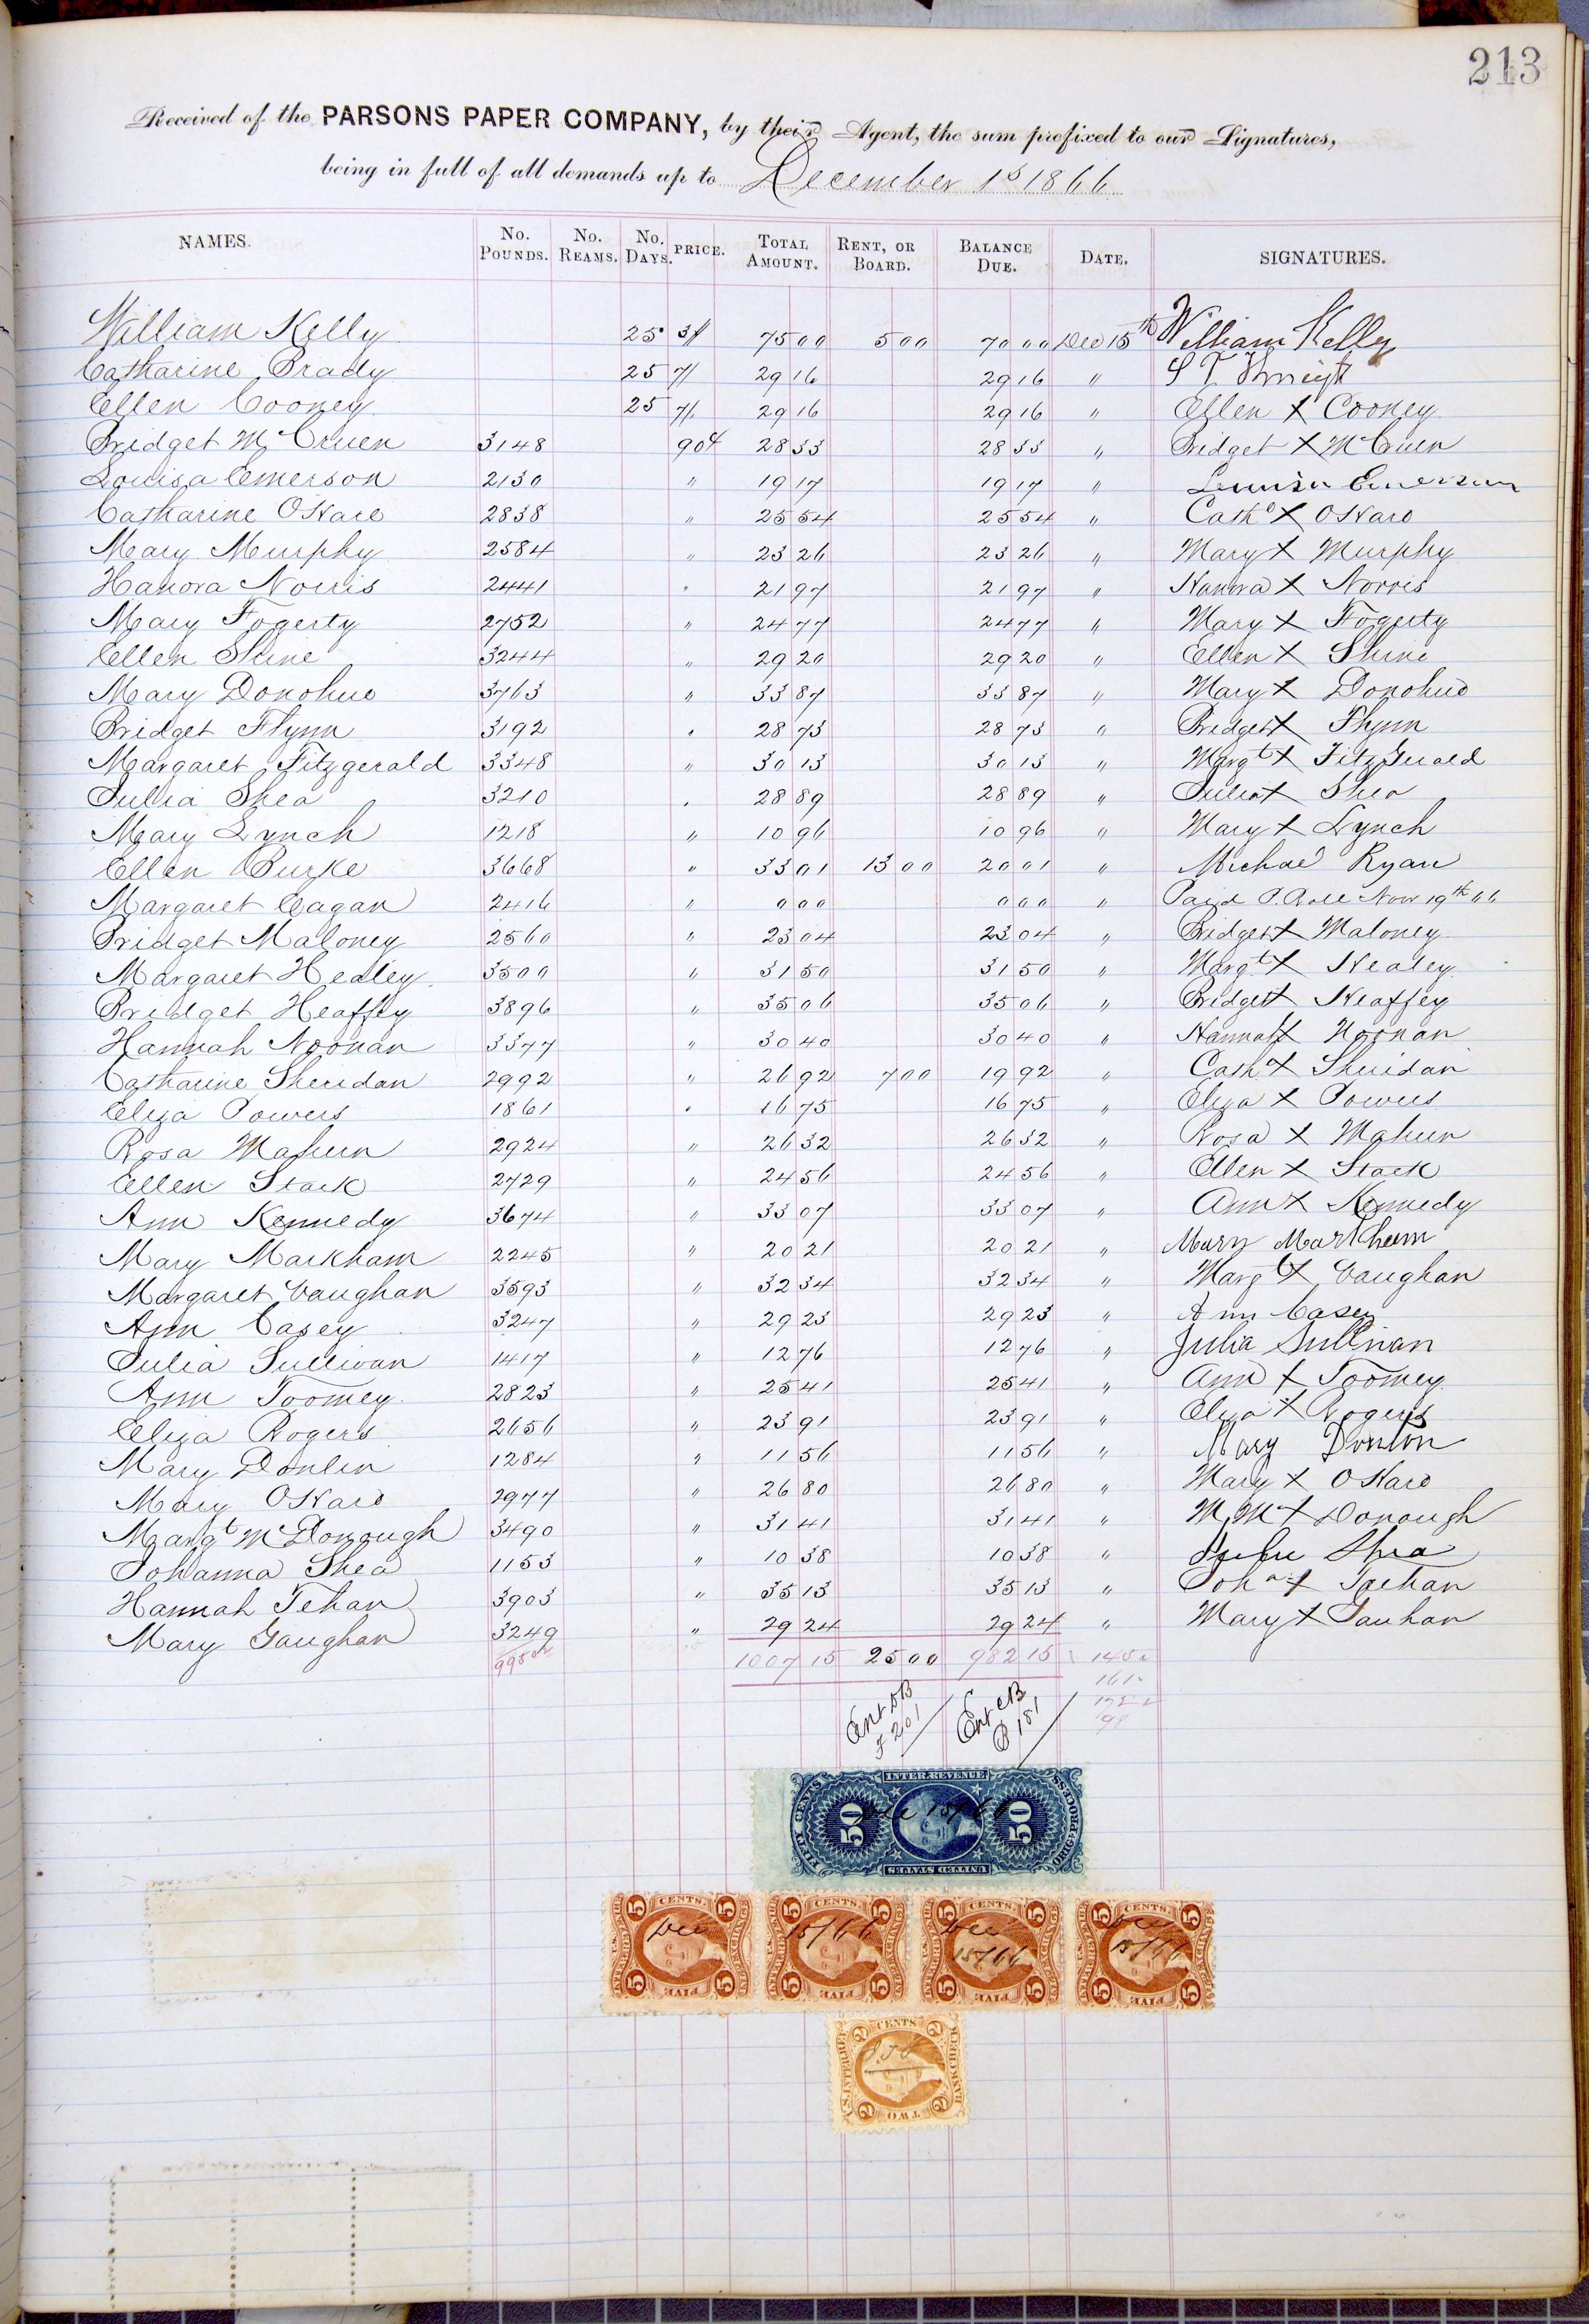 213
Received of the PARSONS PAPER COMPANY, by their Agent, the sum prefixed to our Signatures,
being in full of all demands up to December 1st 1866
NAMES. No. POUNDS. No. REAMS. No. DAYS. PRICE. TOTAL AMOUNT. RENT, OR BOARD. BALANCE DUE. DATE. SIGNATURES.
William Kelly 25 3/ 75 00 5 00 70 00 Dec 15th William Kelly
Catharine Brady 25 7/ 29 16 29 16 " S T Knight
Ellen Cooney 25 7/ 29 16 29 16 " Ellen X Cooney
Bridget McCruen 3148 90¢ 28 33 28 33 " Bridget X McCruen
Louisa Emerson 2130 " 19 17 19 17 " Louisa Emerson
Catharine OHare 2838 " 25 54 25 54 " Cathe X OHare
Mary Murphy 2584 " 23 26 23 26 " Mary X Murphy
Hanora Norris 2441 " 21 97 21 97 " Hanora X Norris
Mary Fogerty 2752 " 24 77 24 77 " Mary X Fogerty
Ellen Shine 3244 " 29 20 29 20 " Ellen X Shine
Mary Donohue 3763 " 33 87 33 87 " Mary X Donohue
Bridget Flynn 3192 " 28 73 28 73 " Bridget X Flynn
Margaret Fitzgerald 3348 " 30 13 30 13 " Margt X FitzGerald
Julia Shea 3210 " 28 89 28 89 " Julia X Shea
Mary Lynch 1218 " 10 96 10 96 " Mary X Lynch
Ellen Burke 3668 " 33 01 13 00 20 01 " Michael Ryan
Margaret Eagan 2416 " 0 00 0 00 " Paid P. Roll Nov 19th 66
Bridget Maloney 2560 " 23 04 23 04 " Bridget X Maloney
Margaret Healey 3500 " 31 50 31 50 " Margt X Healey
Bridget Heaffey 3896 " 35 06 35 06 " Bridget X Heaffey
Hannah Noonan 3377 " 30 40 30 40 " Hannah X Noonan
Catharine Sheridan 2992 " 26 92 7 00 19 92 " Cathe X Sheridan
Eliza Powers 1861 " 16 75 16 75 " Eliza X Powers
Rosa Mahern 2924 " 26 32 26 32 " Rosa X Mahern
Ellen Stack 2729 " 24 56 24 56 " Ellen X Stack
Ann Kennedy 3674 " 33 07 33 07 " Ann X Kennedy
Mary Markham 2245 " 20 21 20 21 " Mary Markham
Margaret Vaughan 3593 " 32 34 32 34 " Margt X Vaughan
Ann Casey 3247 " 29 23 29 23 " Ann Casey
Julia Sullivan 1417 " 12 76 12 76 " Julia Sullivan
Ann Toomey 2823 " 25 41 25 41 " Ann X Toomey
Eliza Rogers 2656 " 23 91 23 91 " Eliza X Rogers
Mary Donlin 1284 " 11 56 11 56 " Mary Donlon
Mary OHare 2977 " 26 80 26 80 " Mary X OHare
Margt McDonough 3490 " 31 41 31 41 " M Mc X Donough
Johanna Shea 1153 " 10 38 10 38 " Shea
Hannah Tehan 3903 " 35 13 35 13 " Joha X Teehan
Mary Gaughan 3249 " 29 24 29 24 " Mary X Gauhan
1007 15 25 00 982 15
Ent DB F 201 Ent CB P 181
INTER. REVENUE
FIFTY CENTS 50 50 ORIG: PROCESS
UNITED STATES
Dec 15/66
5 CENTS. 5 5 CENTS. 5 5 CENTS. 5 5 CENTS. 5
Dec 15/66 Dec 15/66 Dec 15/66
5 FIVE 5 5 FIVE 5 5 FIVE 5 5 FIVE 5
2 CENTS 2
U.S. INTER. REV. BANK CHECK
2 TWO 2